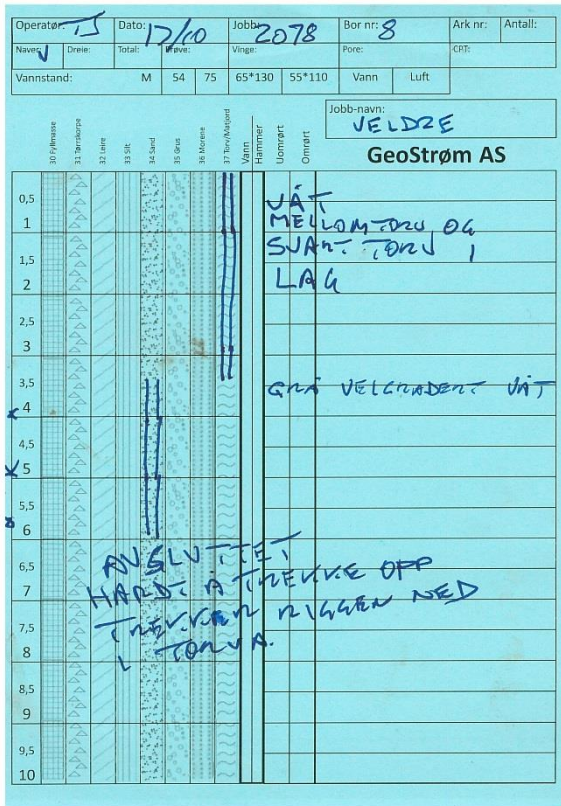 Operatør: TJ Dato: 17/10 Jobb: 2078 Bor nr: 8 Ark nr: Antall:
Naver: V Dreie: Total: Prøve: Vinge: Pore: CPT:
Vannstand: M 54 75 65*130 55*110 Vann Luft
Jobb-navn:
VELDRE
GeoStrøm AS
30 Fyllmasse
31 Tørrskorpe
32 Leire
33 Silt
34 Sand
35 Grus
36 Morene
37 Torv/Matjord
Vann
Hammer
Uomrørt
Omrørt
0,5 VÅT
1 MELLOMTORV OG
1,5 SVART TORV I
2 LAG
2,5
3
3,5 GRÅ VELGRADERT VÅT
4
4,5
5 K
5,5
6
6,5 AVSLUTTET
7 HARDT Å TREKKE OPP
7,5 TREKKER RIGGEN NED
8 I TORVA.
8,5
9
9,5
10